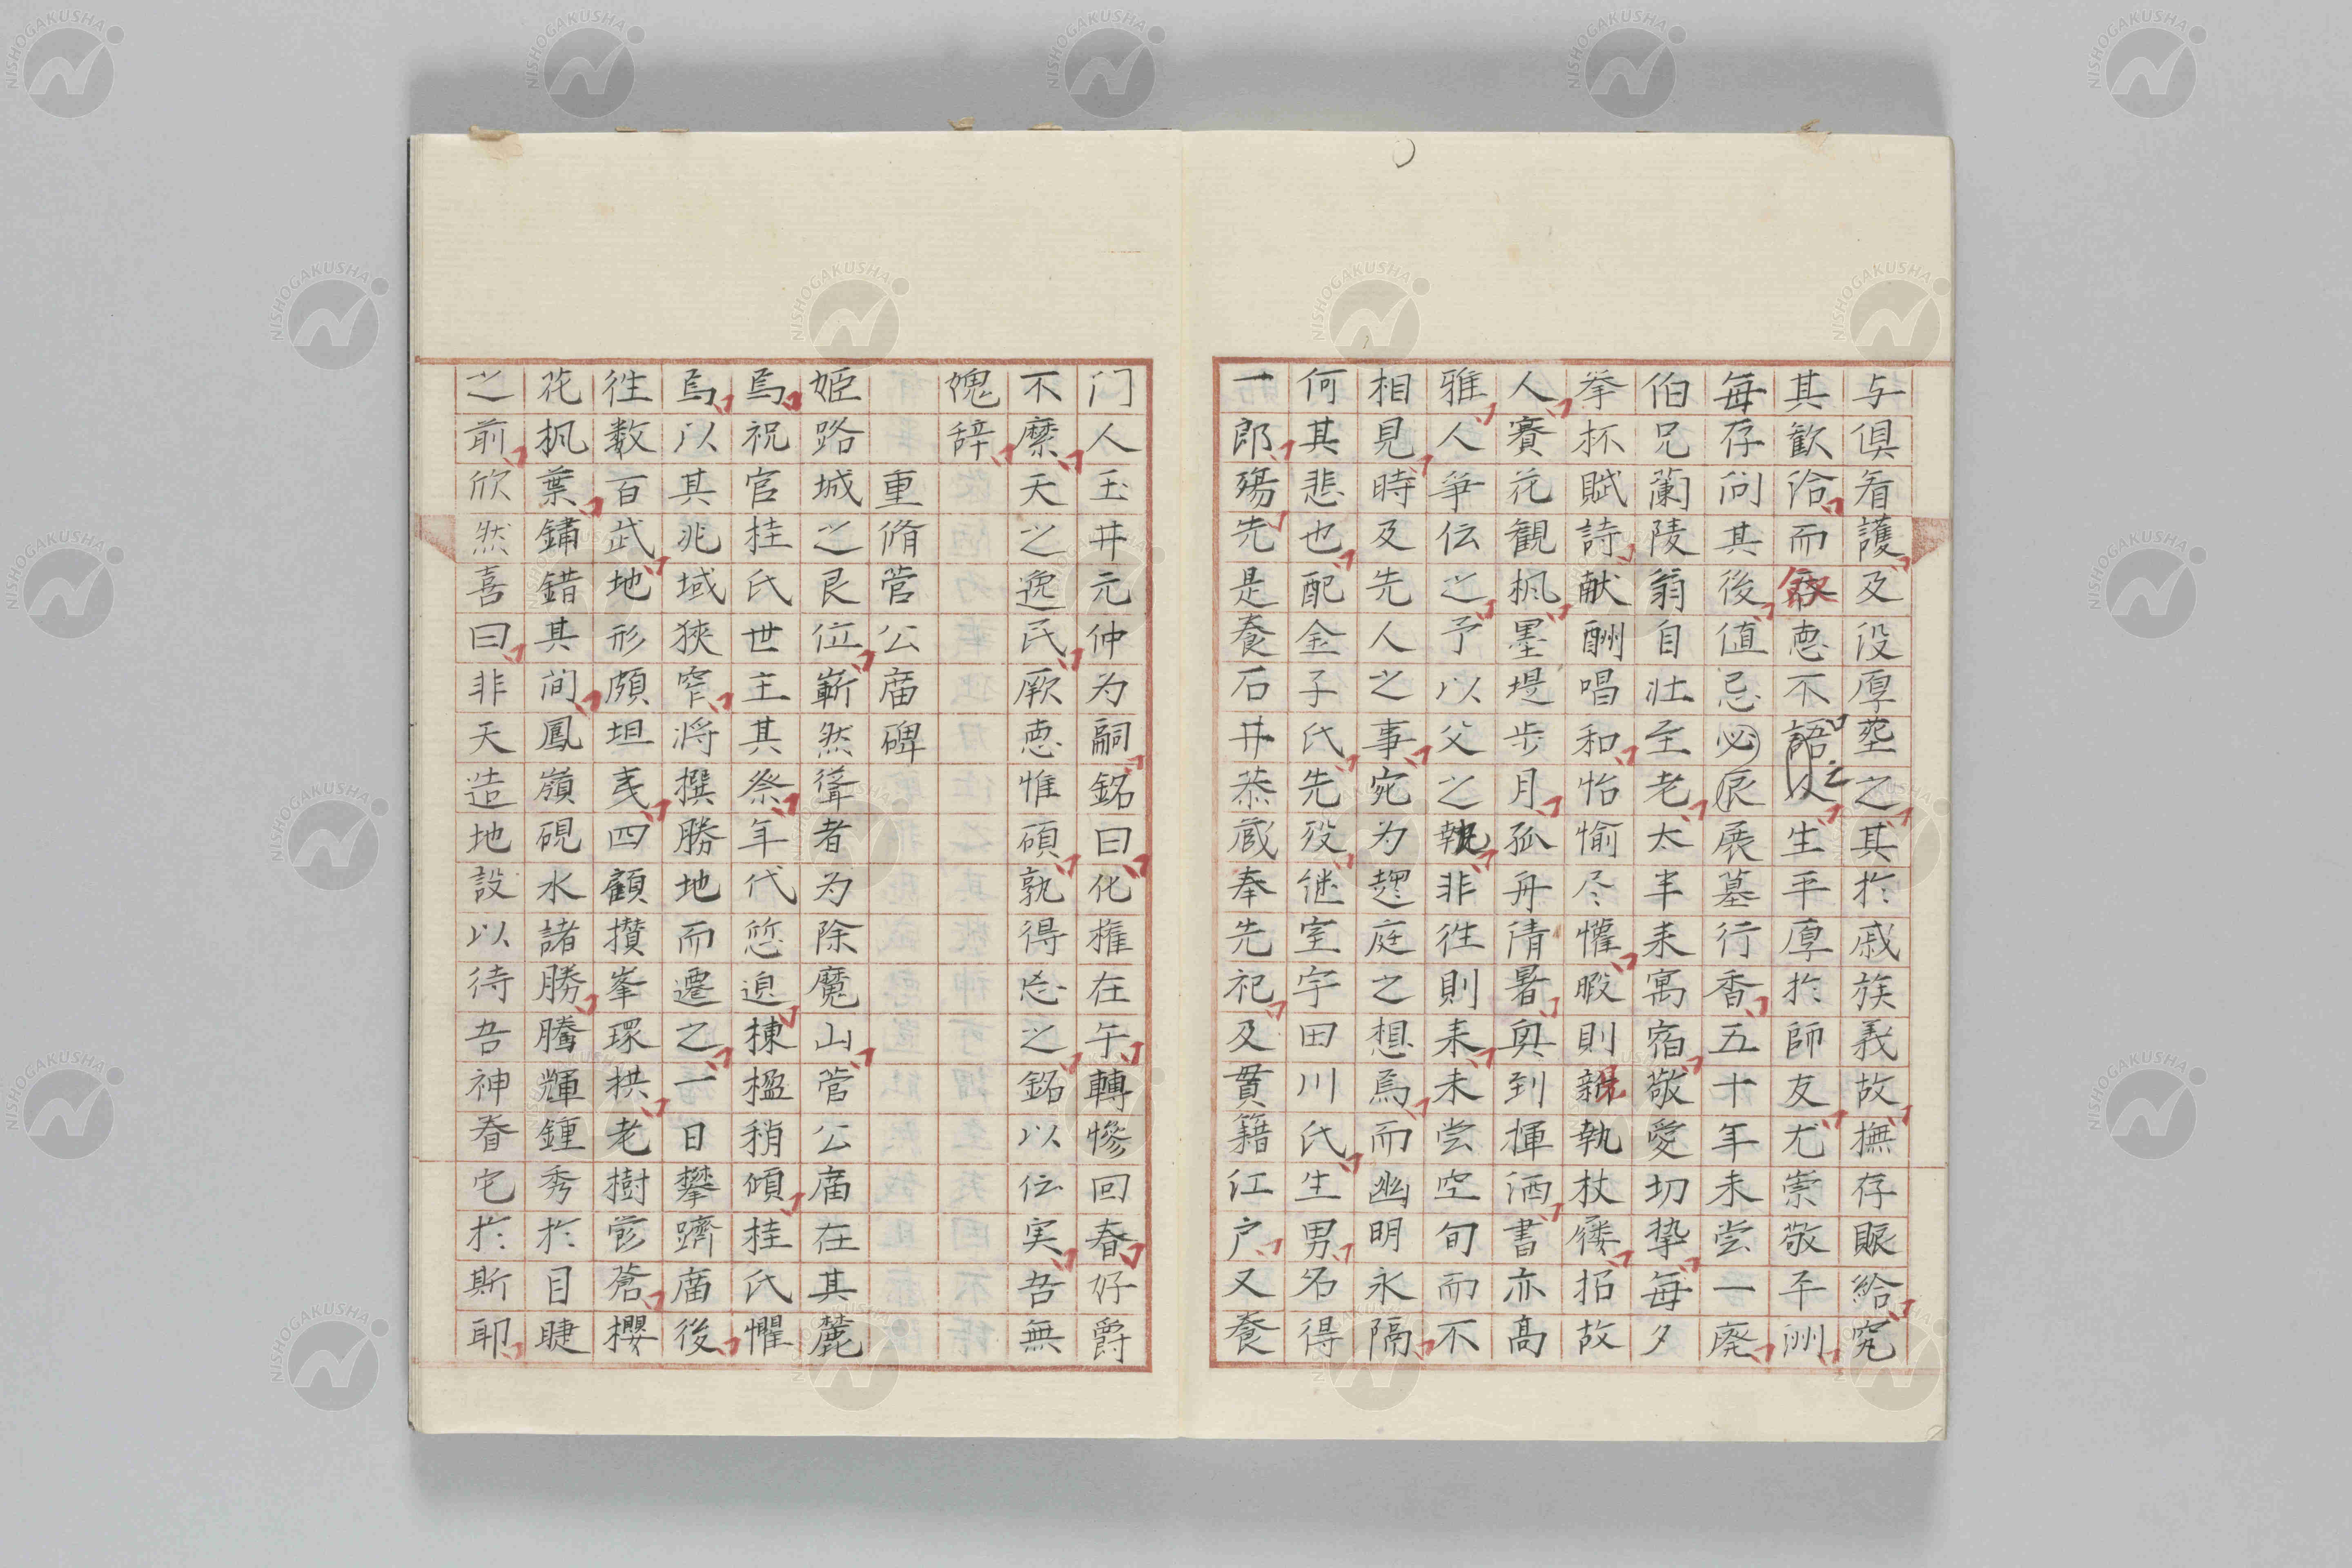 与倶看護及没厚塟之其於戚族義故撫存賑給究
其歓洽而叙恵不語人之生平厚於師友尤崇敬平洲
毎存问其後値忌必辰展墓行香五十年未尝一廃
伯兄蘭陵翁自壮至老太半来寓宿敬愛切摯毎夕
挙杯賦詩献酬唱和怡愉尽懽暇則親執杖屨招故
人賽花観楓墨堤歩月孤舟清暑輿到揮洒書亦高
雅人争伝之予以父之執非徃則来未尝空旬而不
相見時及先人之事宛为趨庭之想焉而幽明永隔
何其悲也配金子氏先歿継室宇田川氏生男名得
一郎殤先是養石井恭蔵奉先祀及貫籍江户又養
门人玉井元仲为嗣銘曰化権在午轉慘回春好爵
不縻天之逸民厥恵惟碩孰得忘之銘以伝実吾無
媿辞
重脩菅公庿碑
姫路城之艮位嶄然聳者为除魔山菅公庿在其麓
焉祝官桂氏世主其祭年代悠邈棟楹稍傾桂氏懼
焉以其兆域狭窄将撰勝地而遷之一日攀躋庿後
徃数百武地形頗坦夷四顧攅峯環拱老樹鬱蒼櫻
花楓葉鏽錯其间鳳嶺硯水諸勝騰輝鍾秀於目睫
之前欣然喜曰非天造地設以待吾神眷宅於斯耶
NISHOGAKUSHA